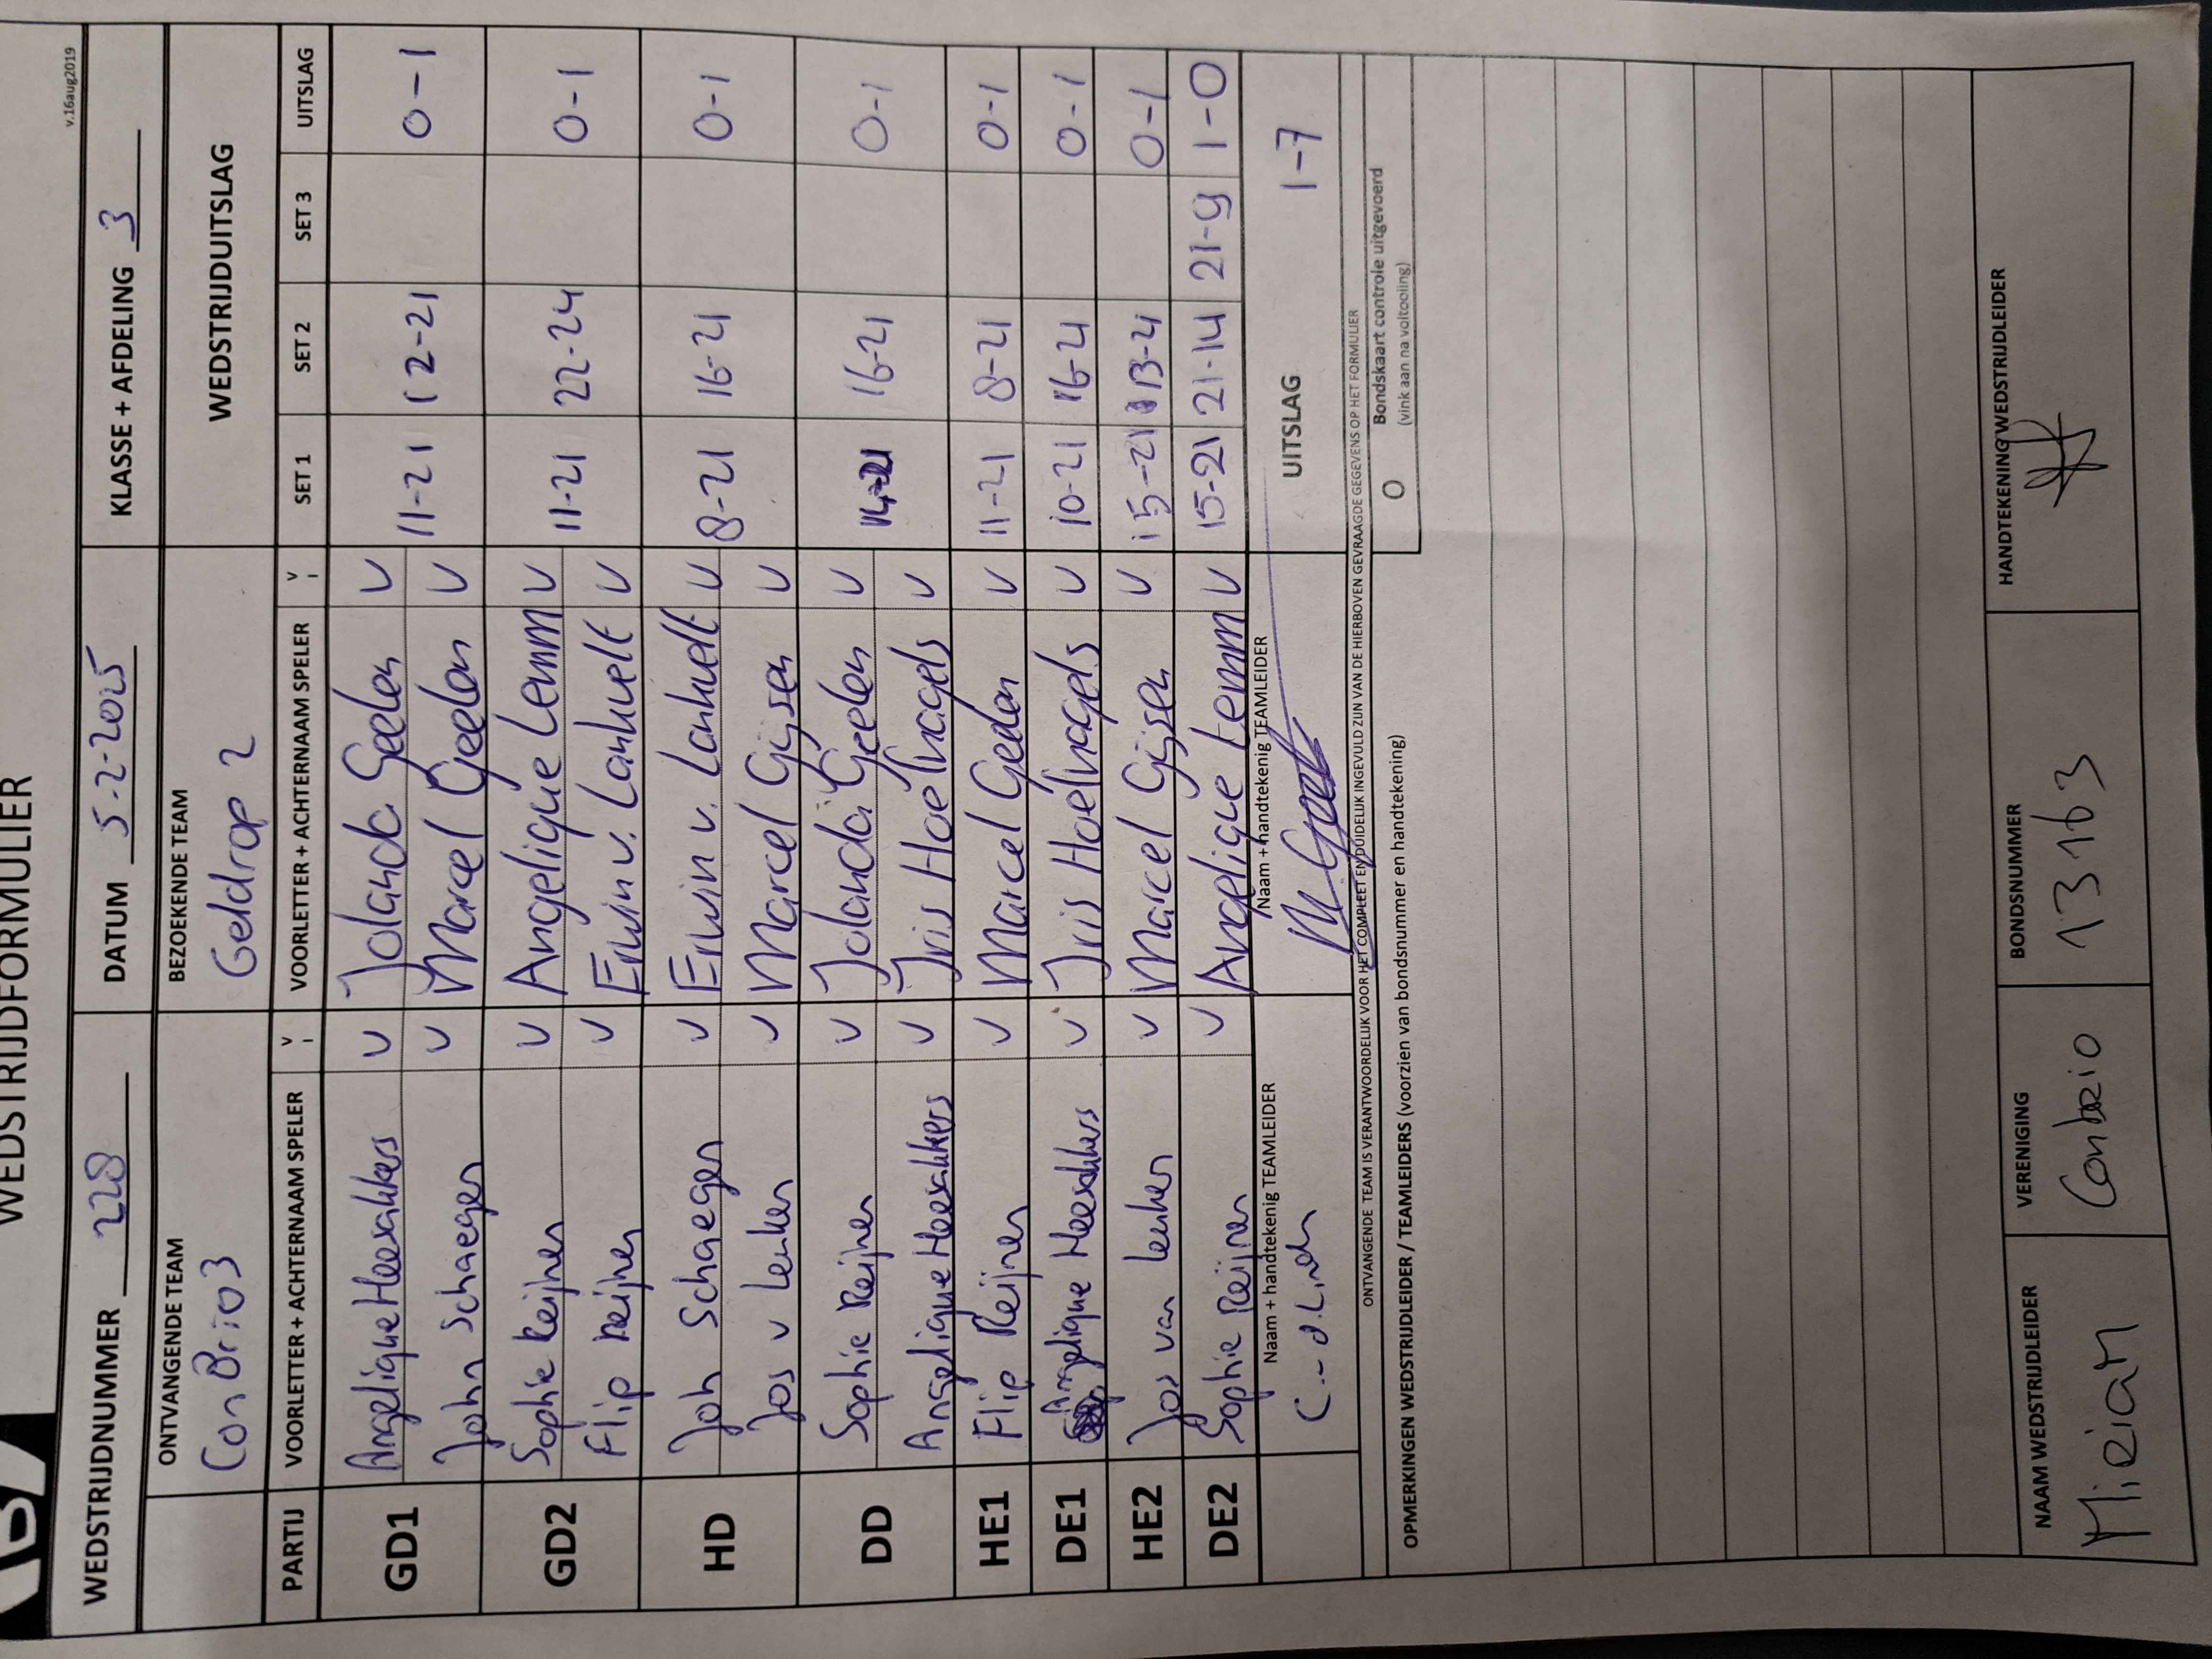 WEDSTRIJDFORMULIER
v.16aug2019
WEDSTRIJDNUMMER 228 DATUM 5-2-2025 KLASSE + AFDELING 3
ONTVANGENDE TEAM BEZOEKENDE TEAM WEDSTRIJDUITSLAG
ConBrio3 Geldrop 2
PARTIJ VOORLETTER + ACHTERNAAM SPELER V VOORLETTER + ACHTERNAAM SPELER V SET 1 SET 2 SET 3 UITSLAG
GD1 Angelique Heesakkers v Jolanda Geelen v 11-21 12-21 0-1
John Schaeger v Marcel Geelen v
GD2 Sophie Reijnen v Angelique Lemm v 11-21 22-24 0-1
Flip Reijnen v Erwin v. Lanhuelt v
HD Joh Schaeger v Erwin v. Lanhuelt v 8-21 16-21 0-1
Jos v Lenken v Marcel Gijsen v
DD Sophie Reijnen v Jolanda Geelen v 16-21 0-1
Angelique Heesakkers v Iris Hoefnagels v
HE1 Flip Reijnen v Marcel Geelen v 11-21 8-21 0-1
DE1 Angelique Heesakkers v Iris Hoefnagels v 10-21 16-21 0-1
HE2 Jos van Lenken v Marcel Gijsen v 15-21 13-21 0-1
DE2 Sophie Reijnen v Angelique Lemm v 15-21 21-14 21-9 1-0
Naam + handtekenig TEAMLEIDER Naam + handtekenig TEAMLEIDER UITSLAG 1-7
ONTVANGENDE TEAM IS VERANTWOORDELIJK VOOR HET COMPLEET EN DUIDELIJK INGEVULD ZIJN VAN DE HIERBOVEN GEVRAAGDE GEGEVENS OP HET FORMULIER
O Bondskaart controle uitgevoerd
(vink aan na voltooiing)
OPMERKINGEN WEDSTRIJDLEIDER / TEAMLEIDERS (voorzien van bondsnummer en handtekening)
NAAM WEDSTRIJDLEIDER VERENIGING BONDSNUMMER HANDTEKENING WEDSTRIJDLEIDER
Miriam Conbrio 13163